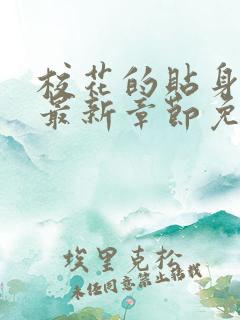 校花的贴身
最新章节免
埃里克松
未经同意禁止转载